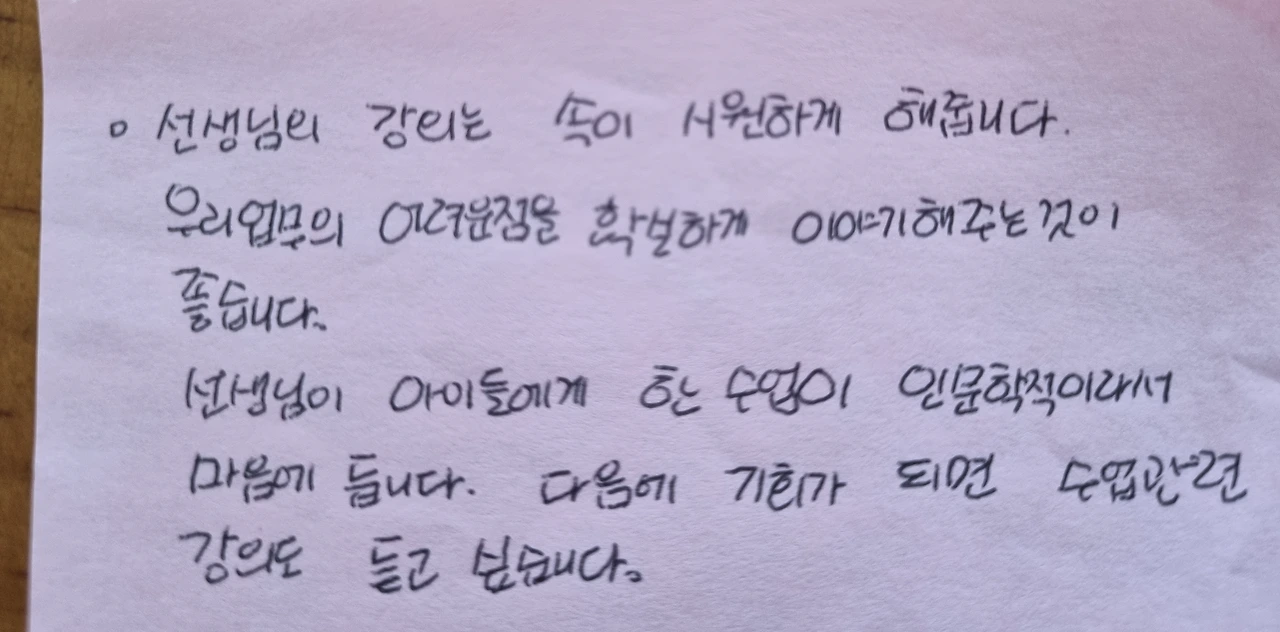 ◦ 선생님의 강의는 속이 시원하게 해줍니다.
우리업무의 어려운점을 확실하게 이야기해주는것이
좋습니다.
선생님이 아이들에게 한 수업이 인문학적이라서
마음에 듭니다. 다음에 기회가 되면 수업관련
강의도 듣고 싶습니다.